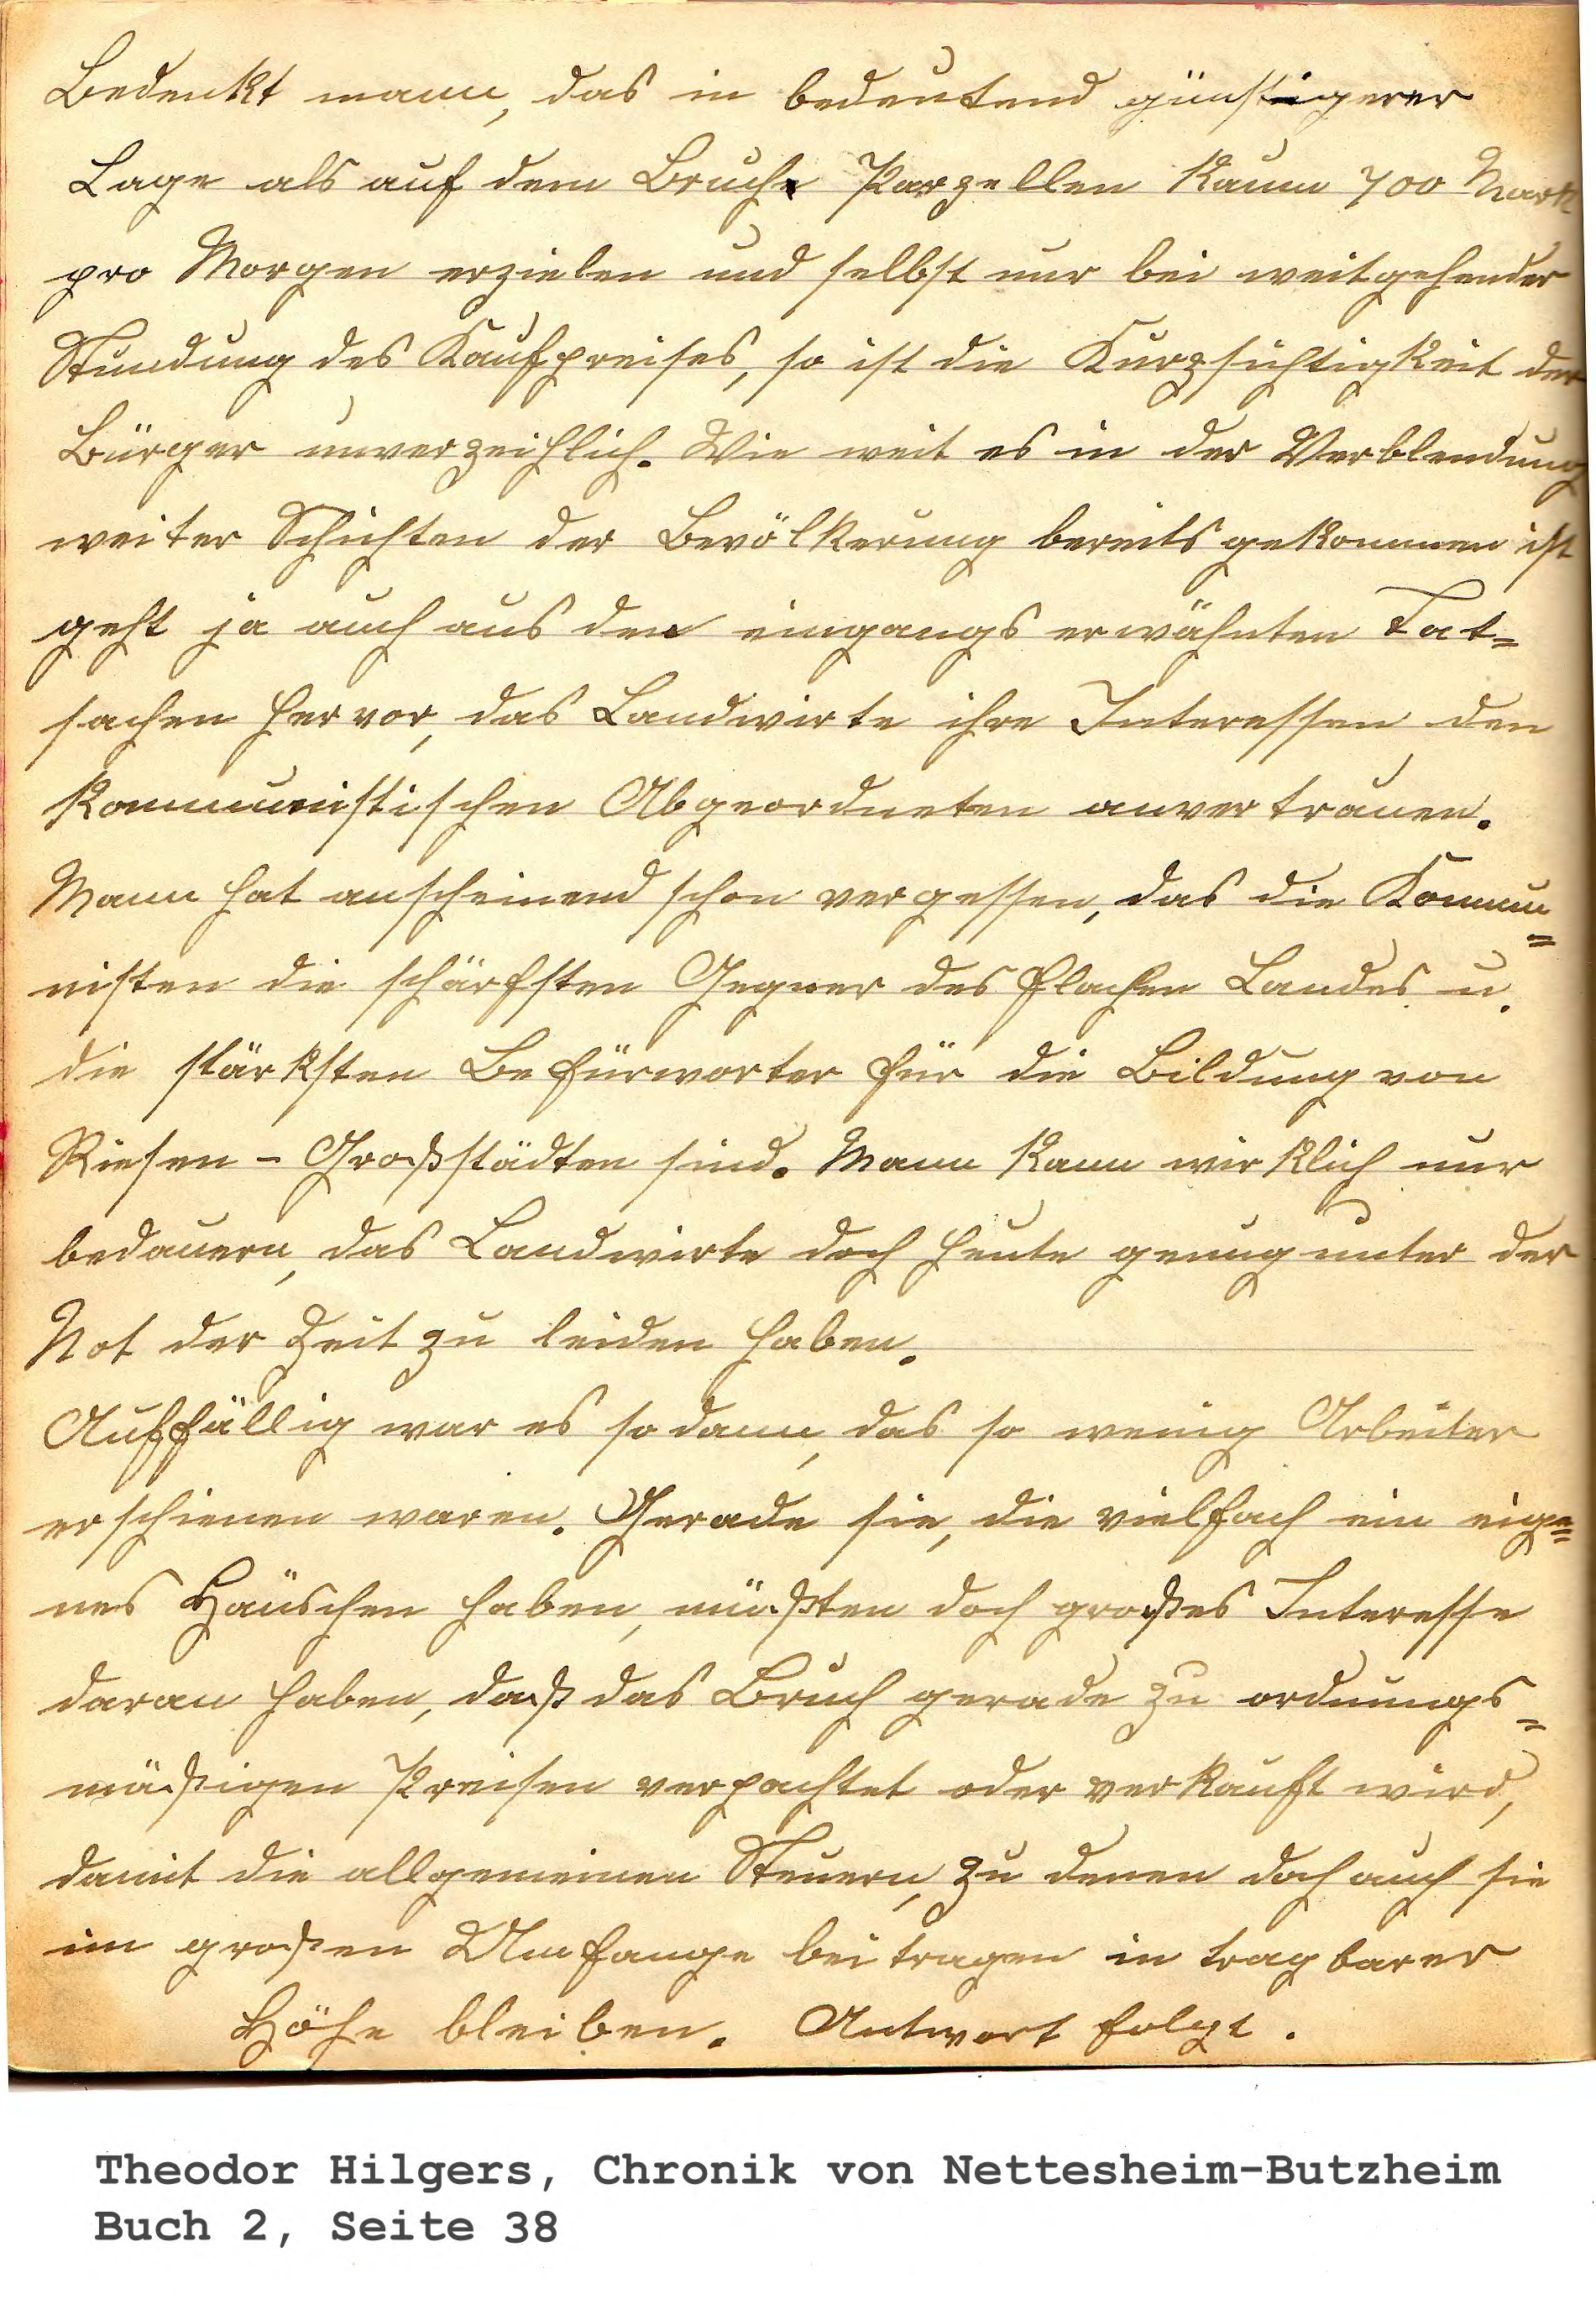 Bedenkt mann, das in bedeutend günstigerer
Lage als auf dem Bruche Parzellen kaum 700 Mark
pro Morgen erzielen und selbst nur bei weitgehender
Stundung des Kaufpreises, so ist die Kurzsichtigkeit der
Bürger unverzeihlich. Wie weit es in der Verblendung
weiter Schichten der Bevölkerung bereits gekommen ist
geht ja auch aus den eingangs erwähnten Tat=
sachen hervor, das Landwirte ihre Interessen den
kommunistischen Abgeordneten anvertrauen.
Mann hat anscheinend schon vergessen, das die Kommu=
nisten die schärfsten Gegner des flachen Landes u.
die stärksten Befürworter für die Bildung von
Riesen - Großstädten sind. Mann kann wirklich nur
bedauern, das Landwirte doch heute genug unter der
Not der Zeit zu leiden haben.
Auffällig war es sodann, das so wenig Arbeiter
erschienen waren. Gerade sie, die vielfach ein eige=
nes Häuschen haben, müßten doch großes Interesse
daran haben, daß das Bruch gerade zu ordnungs=
mäßigen Preisen verpachtet oder verkauft wird,
damit die allgemeinen Steuern, zu denen doch auch sie
im großen Umfange beitragen in tragbarer
Höhe bleiben. Antwort folgt.
Theodor Hilgers, Chronik von Nettesheim-Butzheim
Buch 2, Seite 38